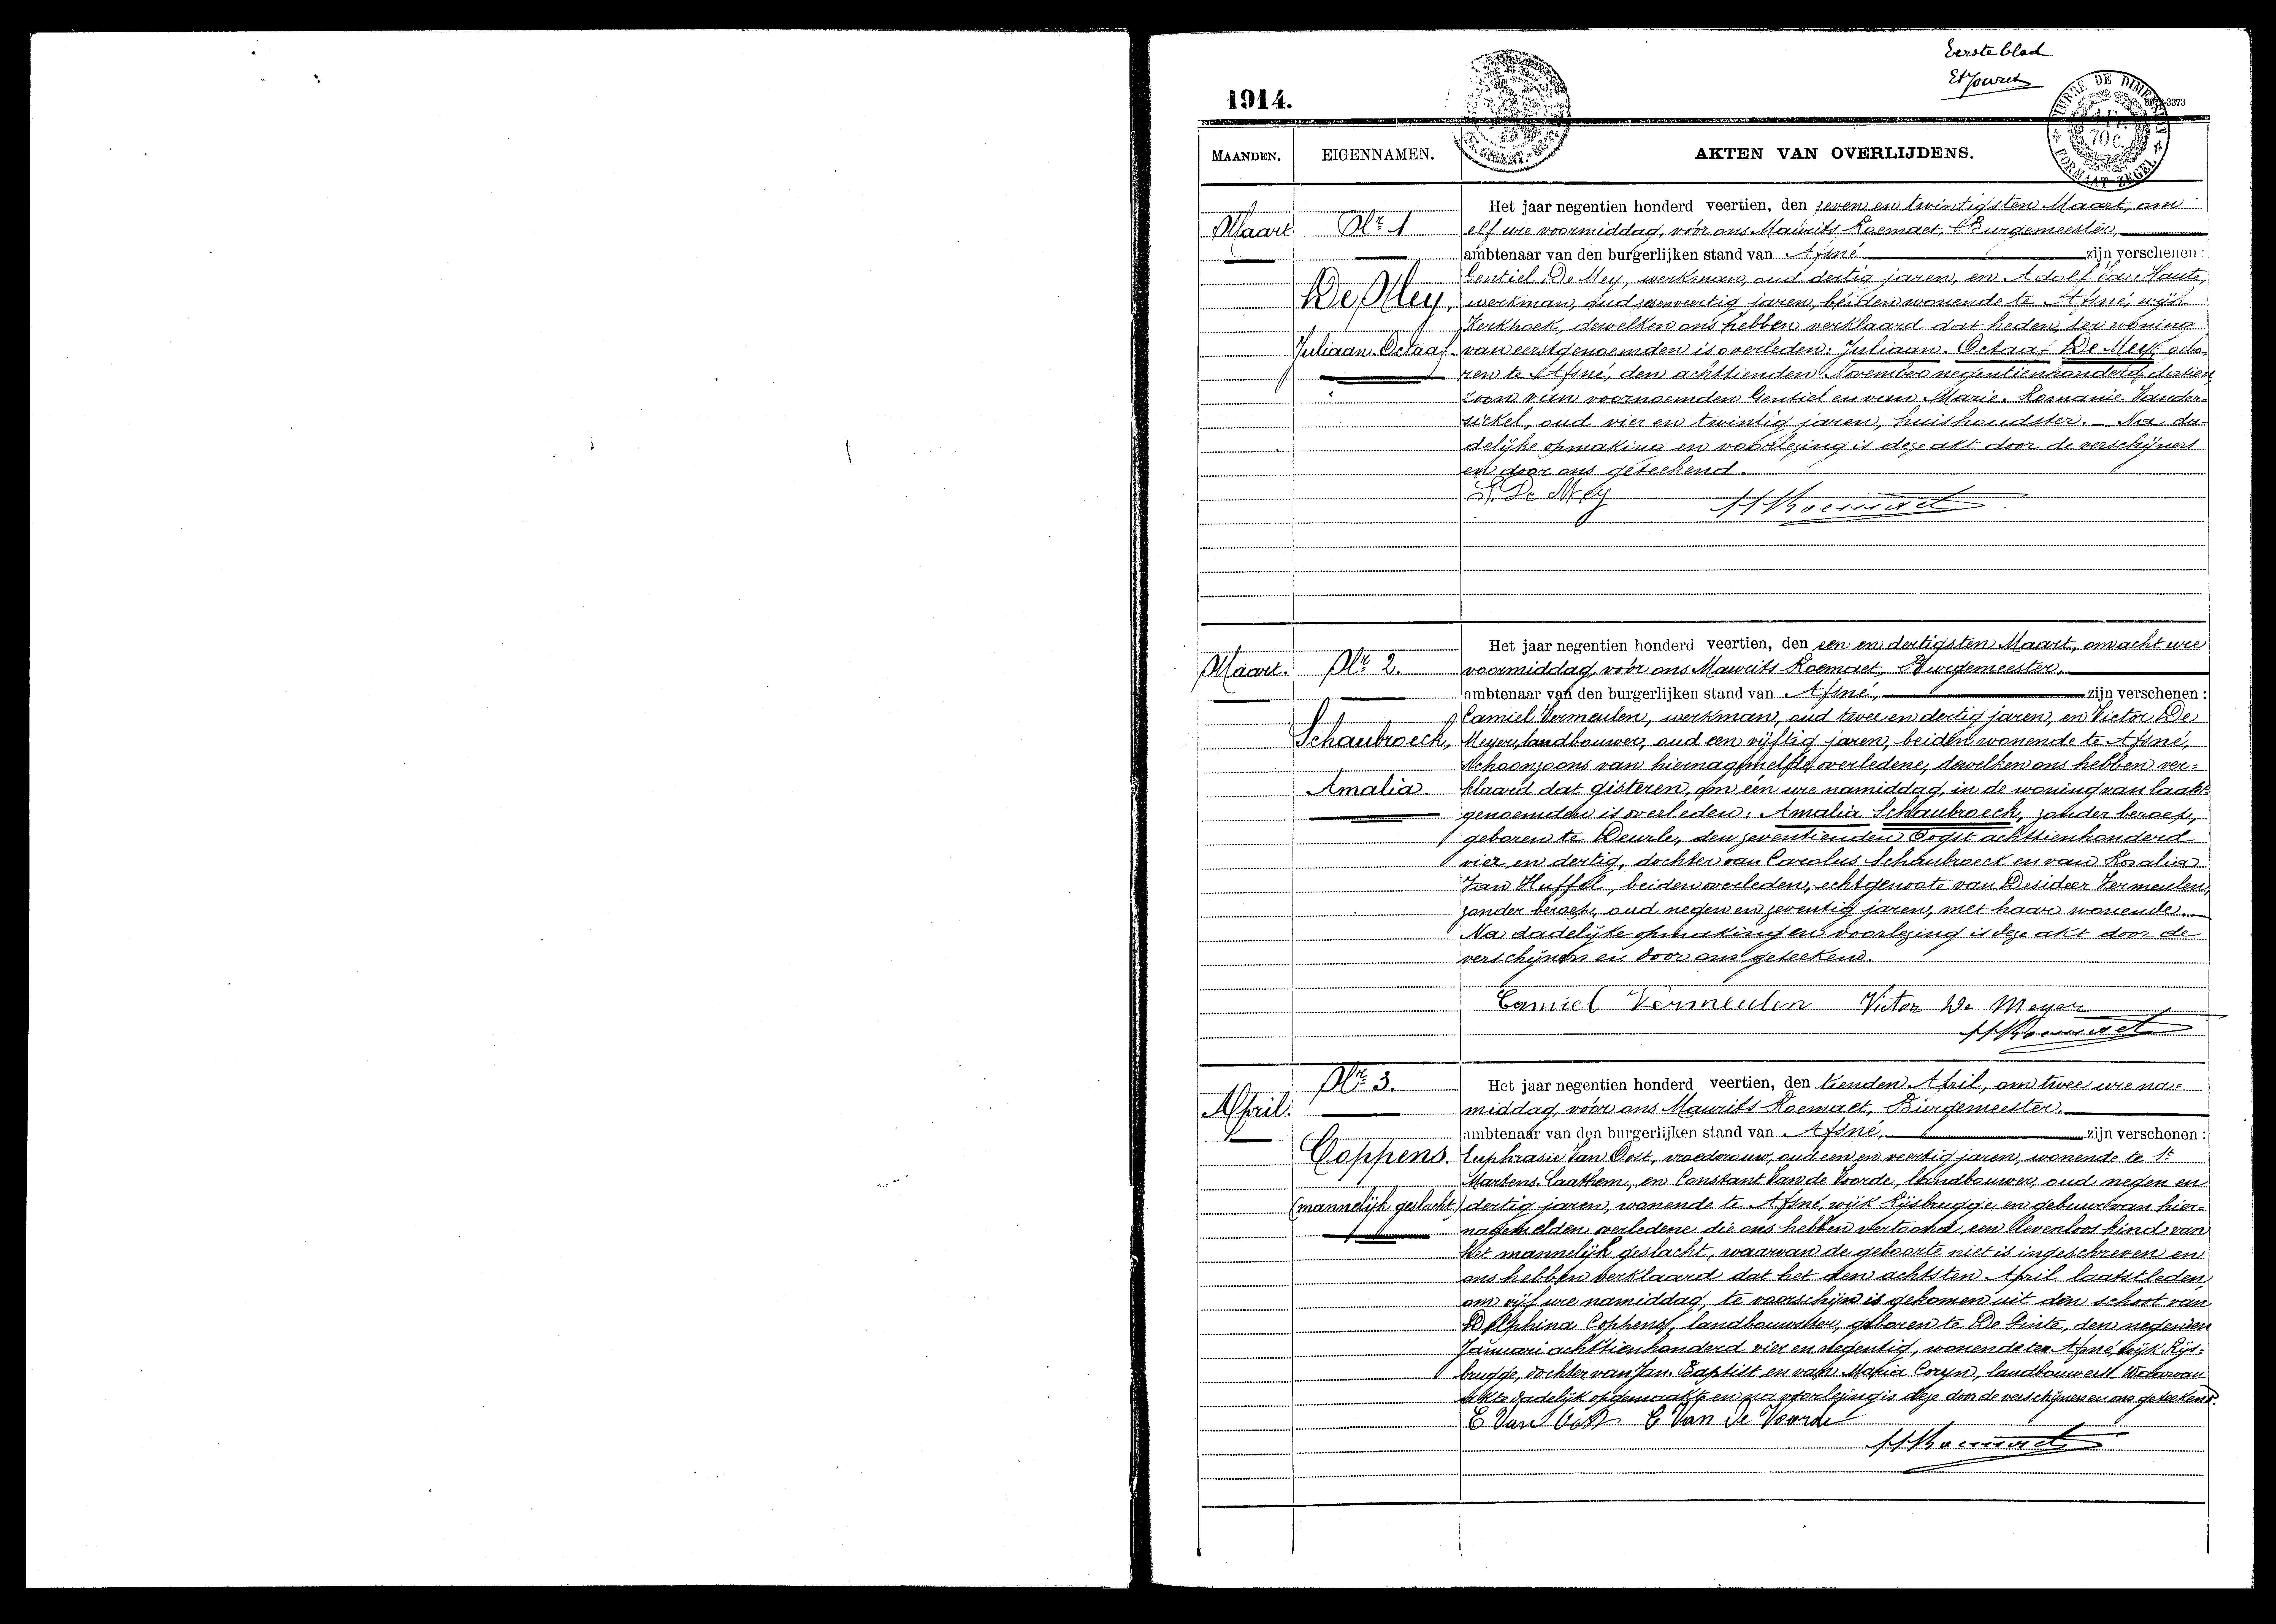 Eerste blad
1914.
TIMBRE DE DIMENSION
70 c.
FORMAAT ZEGEL
MAANDEN. EIGENNAMEN. AKTEN VAN OVERLIJDENS.
Maart Nr 1
De Mey,
Juliaan-Octaaf.
Het jaar negentien honderd veertien, den zeven en twintigsten Maart, om
elf ure voormiddag, vóór ons Maurits Roemaet, Burgemeester,
ambtenaar van den burgerlijken stand van Afsné zijn verschenen:
Gentiel De Mey, werkman, oud dertig jaren, en Adolf Van Haute,
werkman, oud jaren, beiden wonende te Afsné, wijk
Kerkhoek, dewelken ons hebben verklaard dat heden, ter woning
van eerstgenoemden is overleden: Juliaan-Octaaf De Mey, gebo-
ren te Afsné, den achttienden November negentienhonderd dertien,
zoon van voornoemden Gentiel en van Marie-Romanie Vander-
sickel, oud vier en twintig jaren, huishoudster. Na da-
delijke opmaking en voorlezing is deze akt door de verschijners
en door ons geteekend.
De Mey MRoemaet
Maart. Nr 2.
Schaubroeck,
Amalia
Het jaar negentien honderd veertien, den een en dertigsten Maart, om acht ure
voormiddag, vóór ons Maurits Roemaet, Burgemeester,
ambtenaar van den burgerlijken stand van Afsné, zijn verschenen:
Camiel Vermeulen, werkman, oud twee en dertig jaren, en Victor De
Meyer, landbouwer, oud een vijftig jaren, beiden wonende te Afsné,
schoonzoons van hiernagemelde overledene, dewelken ons hebben ver-
klaard dat gisteren, om één ure namiddag, in de woning van laatst-
genoemden is overleden: Amalia Schaubroeck, zonder beroep,
geboren te Deurle, den zeventienden Oogst achttienhonderd
vier en dertig, dochter van Carolus Schaubroeck en van Rosalia
Van Huffel, beiden overleden, echtgenoote van Desideer Vermeulen,
zonder beroep, oud negen en zeventig jaren, met haar wonende.
Na dadelijke opmaking en voorlezing is deze akt door de
verschijners en door ons geteekend.
Camiel Vermeulen Victor De Meyer
MRoemaet
April. Nr 3.
Coppens
(mannelijk geslacht)
Het jaar negentien honderd veertien, den tienden April, om twee ure na-
middag, vóór ons Maurits Roemaet, Burgemeester,
ambtenaar van den burgerlijken stand van Afsné, zijn verschenen:
Euphrasie Van Oost, vroedvrouw, oud een en veertig jaren, wonende te St
Martens-Laathem, en Constant Van de Voorde, landbouwer, oud negen en
dertig jaren, wonende te Afsné, wijk Rijsbrugge en gebuur van hier-
nagemelden overledene die ons hebben vertoond een levenloos kind van
het mannelijk geslacht, waarvan de geboorte niet is ingeschreven en
ons hebben verklaard dat het den achtsten April laatstleden,
om vijf ure namiddag, te voorschijn is gekomen uit den schoot van
Delphina Coppens, landbouwster, geboren te De Pinte, den negenden
Januari achttienhonderd vier en negentig, wonende te Afsné, wijk Rijs-
brugge, dochter van Jan-Baptist en van Maria Coryn, landbouwers. Waarvan
akte dadelijk opgemaakt en na voorlezing is deze door de verschijners en ons geteekend.
E Van Oost C Van de Voorde
MRoemaet